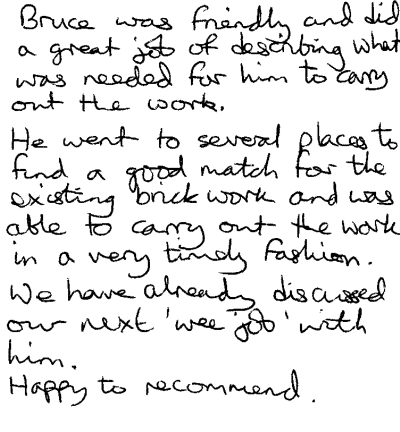 Bruce was friendly and did
a great job of describing what
was needed for him to carry
out the work.
He went to several places to
find a good match for the
existing brick work and was
able to carry out the work
in a very timely fashion.
We have already discussed
our next 'wee job' with
him.
Happy to recommend.